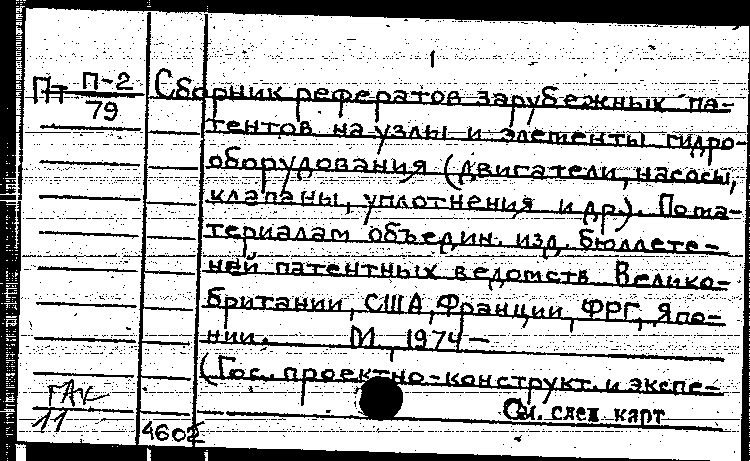 1
Пт П-2/79
Сборник рефератов зарубежных па-
тентов на узлы и элементы гидро-
оборудования (двигатели, насосы,
клапаны, уплотнения и др.). По ма-
териалам объедин. изд. бюллете-
ней патентных ведомств Велико-
британии, США, Франции, ФРГ, Япо-
нии. М., 1974 —
(Гос. проектно-конструкт. и экспе-
См. след. карт
11
4602